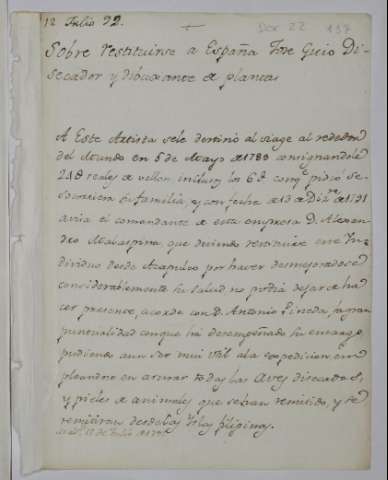 12 Julio 92.
Sobre restituirse a España Jose Guio Di-
secador y dibuxante de plantas
A Este Artista se le destinó al viage al rededor
del Mundo en 5 de Mayo de 1789 consignandole
24 reales de vellon, inclusos los 6 que pidió se
socorriera su familia, y con fecha de 13 de Dizre de 1791
avisa el comandante de esta empresa D. Alexan-
dro Malaspina, que deviendo restituirse este In-
dividuo desde Acapulco por haver desmejoradose
considerablemente su salud no podia dejar de ha
cer presente, acorde con D. Antonio Pineda, la gran
puntualidad con que ha desempeñado su encargo
pudiendo aun ser mui util a la expedicion em
pleandose en armar todas las Aves disecadas,
y pieles de animales que se han remitido, y se
remitiran desde las Islas filipinas.
12 de Julio de 1792